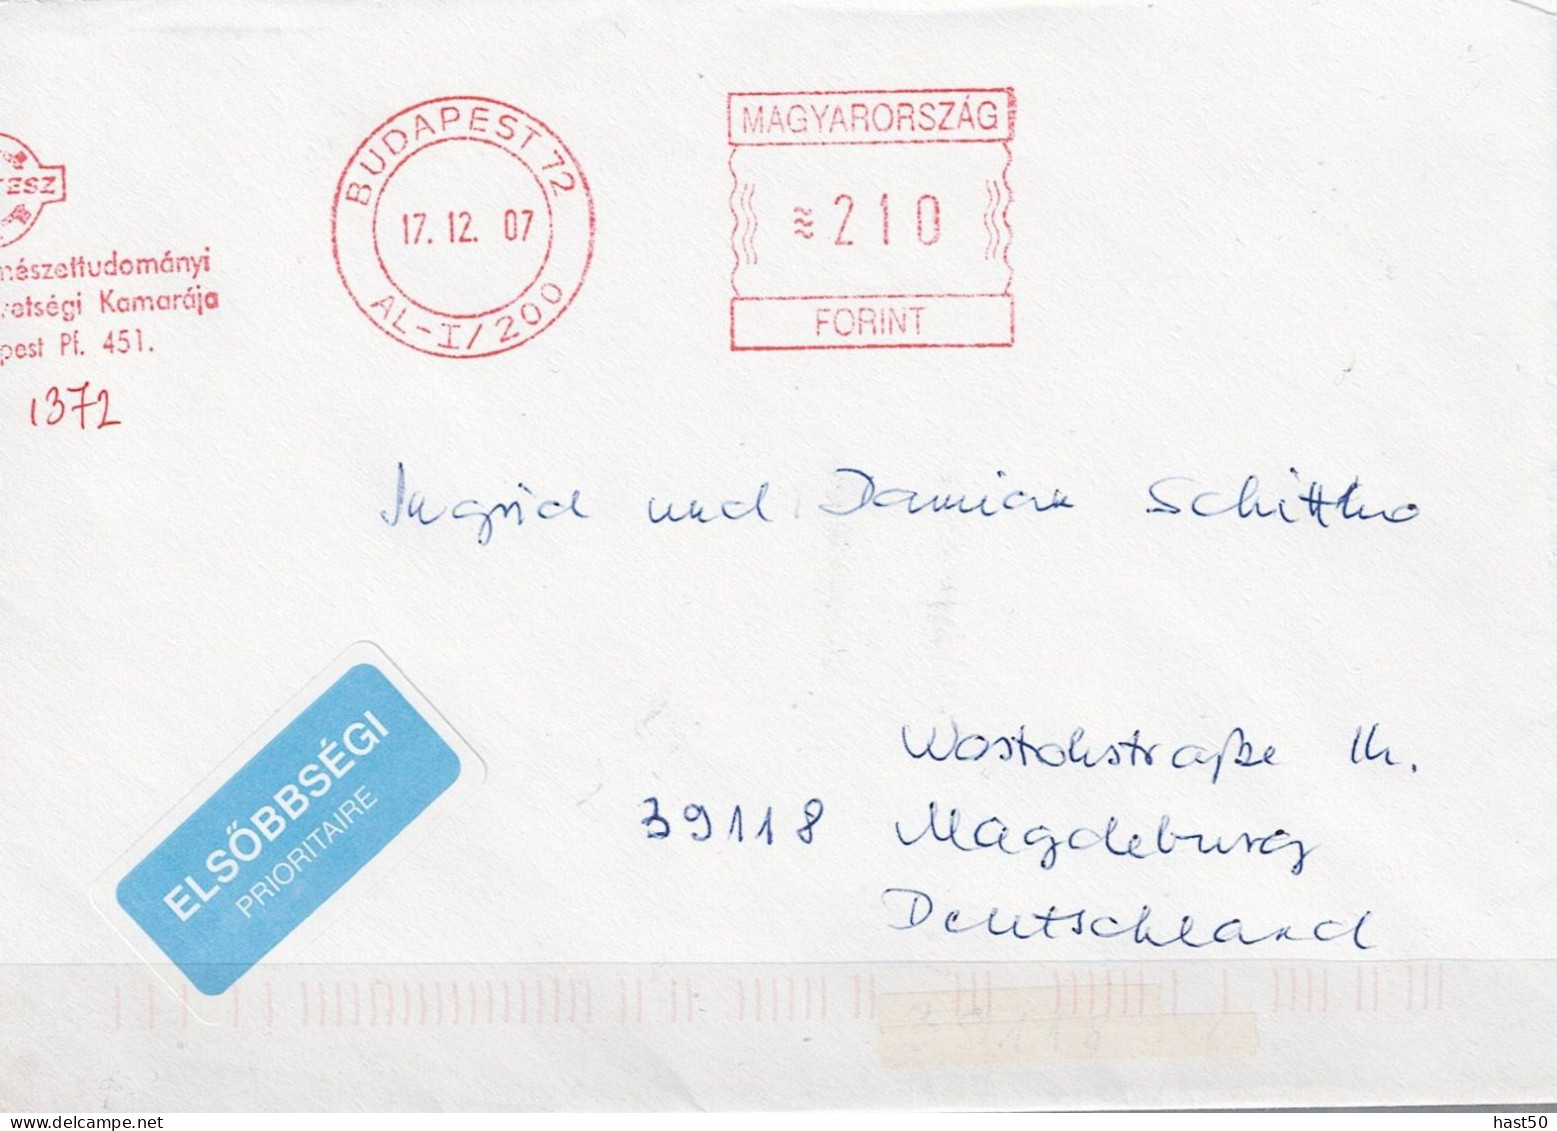 BUDAPEST 72
17. 12. 07
AL-I/200
MAGYARORSZÁG
≈210
FORINT
TESZ
mészettudományi
vetségi Kamarája
pest Pf. 451.
1372
Ingrid und Damian Schittko
Wostokstraße
39118 Magdeburg
Deutschland
ELSŐBBSÉGI
PRIORITAIRE
hast50